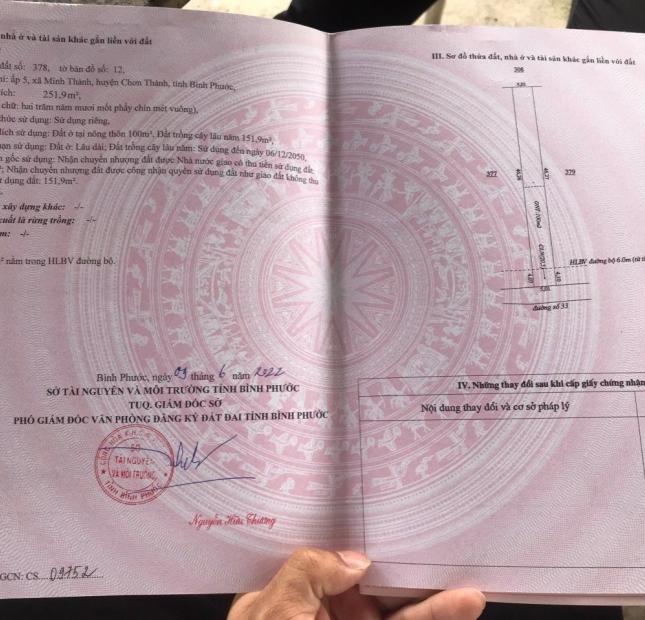 nhà ở và tài sản khác gắn liền với đất
đất số: 378, tờ bản đồ số: 12,
ấp 5, xã Minh Thành, huyện Chơn Thành, tỉnh Bình Phước,
tích: 251,9m²,
chữ: hai trăm năm mươi mốt phẩy chín mét vuông),
thức sử dụng: Sử dụng riêng,
đích sử dụng: Đất ở tại nông thôn 100m², Đất trồng cây lâu năm 151,9m²,
hạn sử dụng: Đất ở: Lâu dài; Đất trồng cây lâu năm: Sử dụng đến ngày 06/12/2050,
gốc sử dụng: Nhận chuyển nhượng đất được Nhà nước giao có thu tiền sử dụng đất
Nhận chuyển nhượng đất được công nhận quyền sử dụng đất như giao đất không thu
dụng đất: 151,9m².
xây dựng khác: -/-
xuất là rừng trồng: -/-
năm: -/-
nằm trong HLBV đường bộ.
Bình Phước, ngày 09 tháng 6 năm 2022
SỞ TÀI NGUYÊN VÀ MÔI TRƯỜNG TỈNH BÌNH PHƯỚC
TUQ. GIÁM ĐỐC SỞ
PHÓ GIÁM ĐỐC VĂN PHÒNG ĐĂNG KÝ ĐẤT ĐAI TỈNH BÌNH PHƯỚC
SỞ
TÀI NGUYÊN
VÀ MÔI TRƯỜNG
TỈNH BÌNH PHƯỚC
Nguyễn Hữu Thương
GCN: CS 09752
III. Sơ đồ thửa đất, nhà ở và tài sản khác gắn liền với đất
377
379
HLBV đường bộ 6.0m (từ
đường số 33
IV. Những thay đổi sau khi cấp giấy chứng nhận
Nội dung thay đổi và cơ sở pháp lý